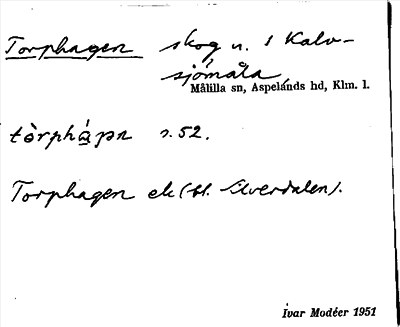 Torphagen skog n. 1 Kalv-
sjömåla
Målilla sn, Aspelands hd, Klm. l.
tòrphápn s. 52.
Torphagen ek (bl. Silverdalen).
Ivar Modéer 1951